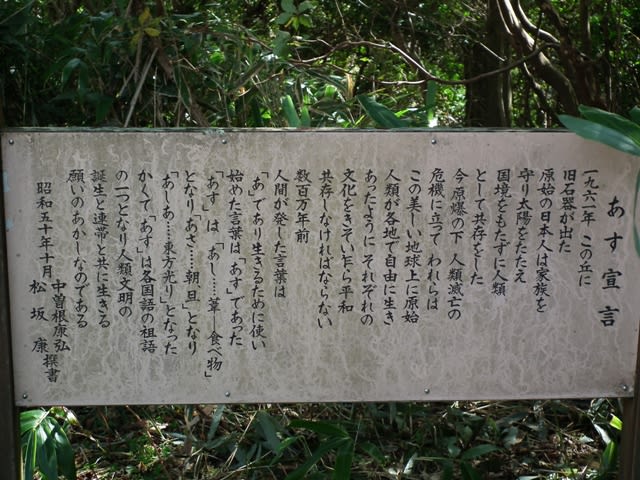 あす宣言
一九六一年 この丘に
旧石器が出た
原始の日本人は家族を
守り太陽をたたえ
国境をもたずに人類
として共存をした
今原爆の下 人類滅亡の
危機に立って われらは
この美しい地球上に原始
人類が各地で自由に生き
あったように それぞれの
文化をきそい乍ら平和
共存しなければならない
数百万年前
人間が発した言葉は
「あ」であり生きるために使い
始めた言葉は「あす」であった
「あす」は「あし……葦―食べ物」
となり「あさ……朝、旦」となり
「あしあ……東方光り」となった
かくて「あす」は各国語の祖語
の一つとなり人類文明の
誕生と連帯と共に生きる
願いのあかしなのである
昭和五十年十月
中曽根康弘
松坂 康撰書